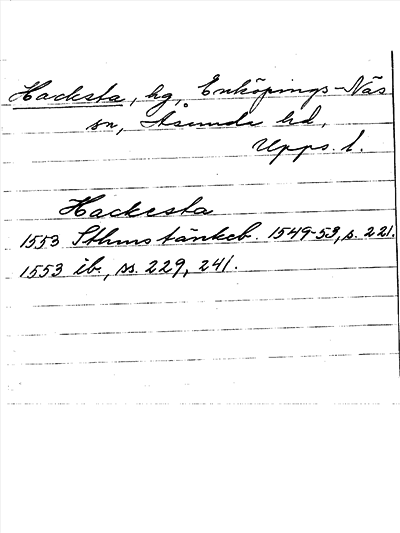 Hacksta, hg, Enköpings-Näs
sn, Åsunda hd,
Upps. l.
Hackesta
1553 Sthms tänkeb. 1549-53, s. 221.
1553 ib., ss. 229, 241.